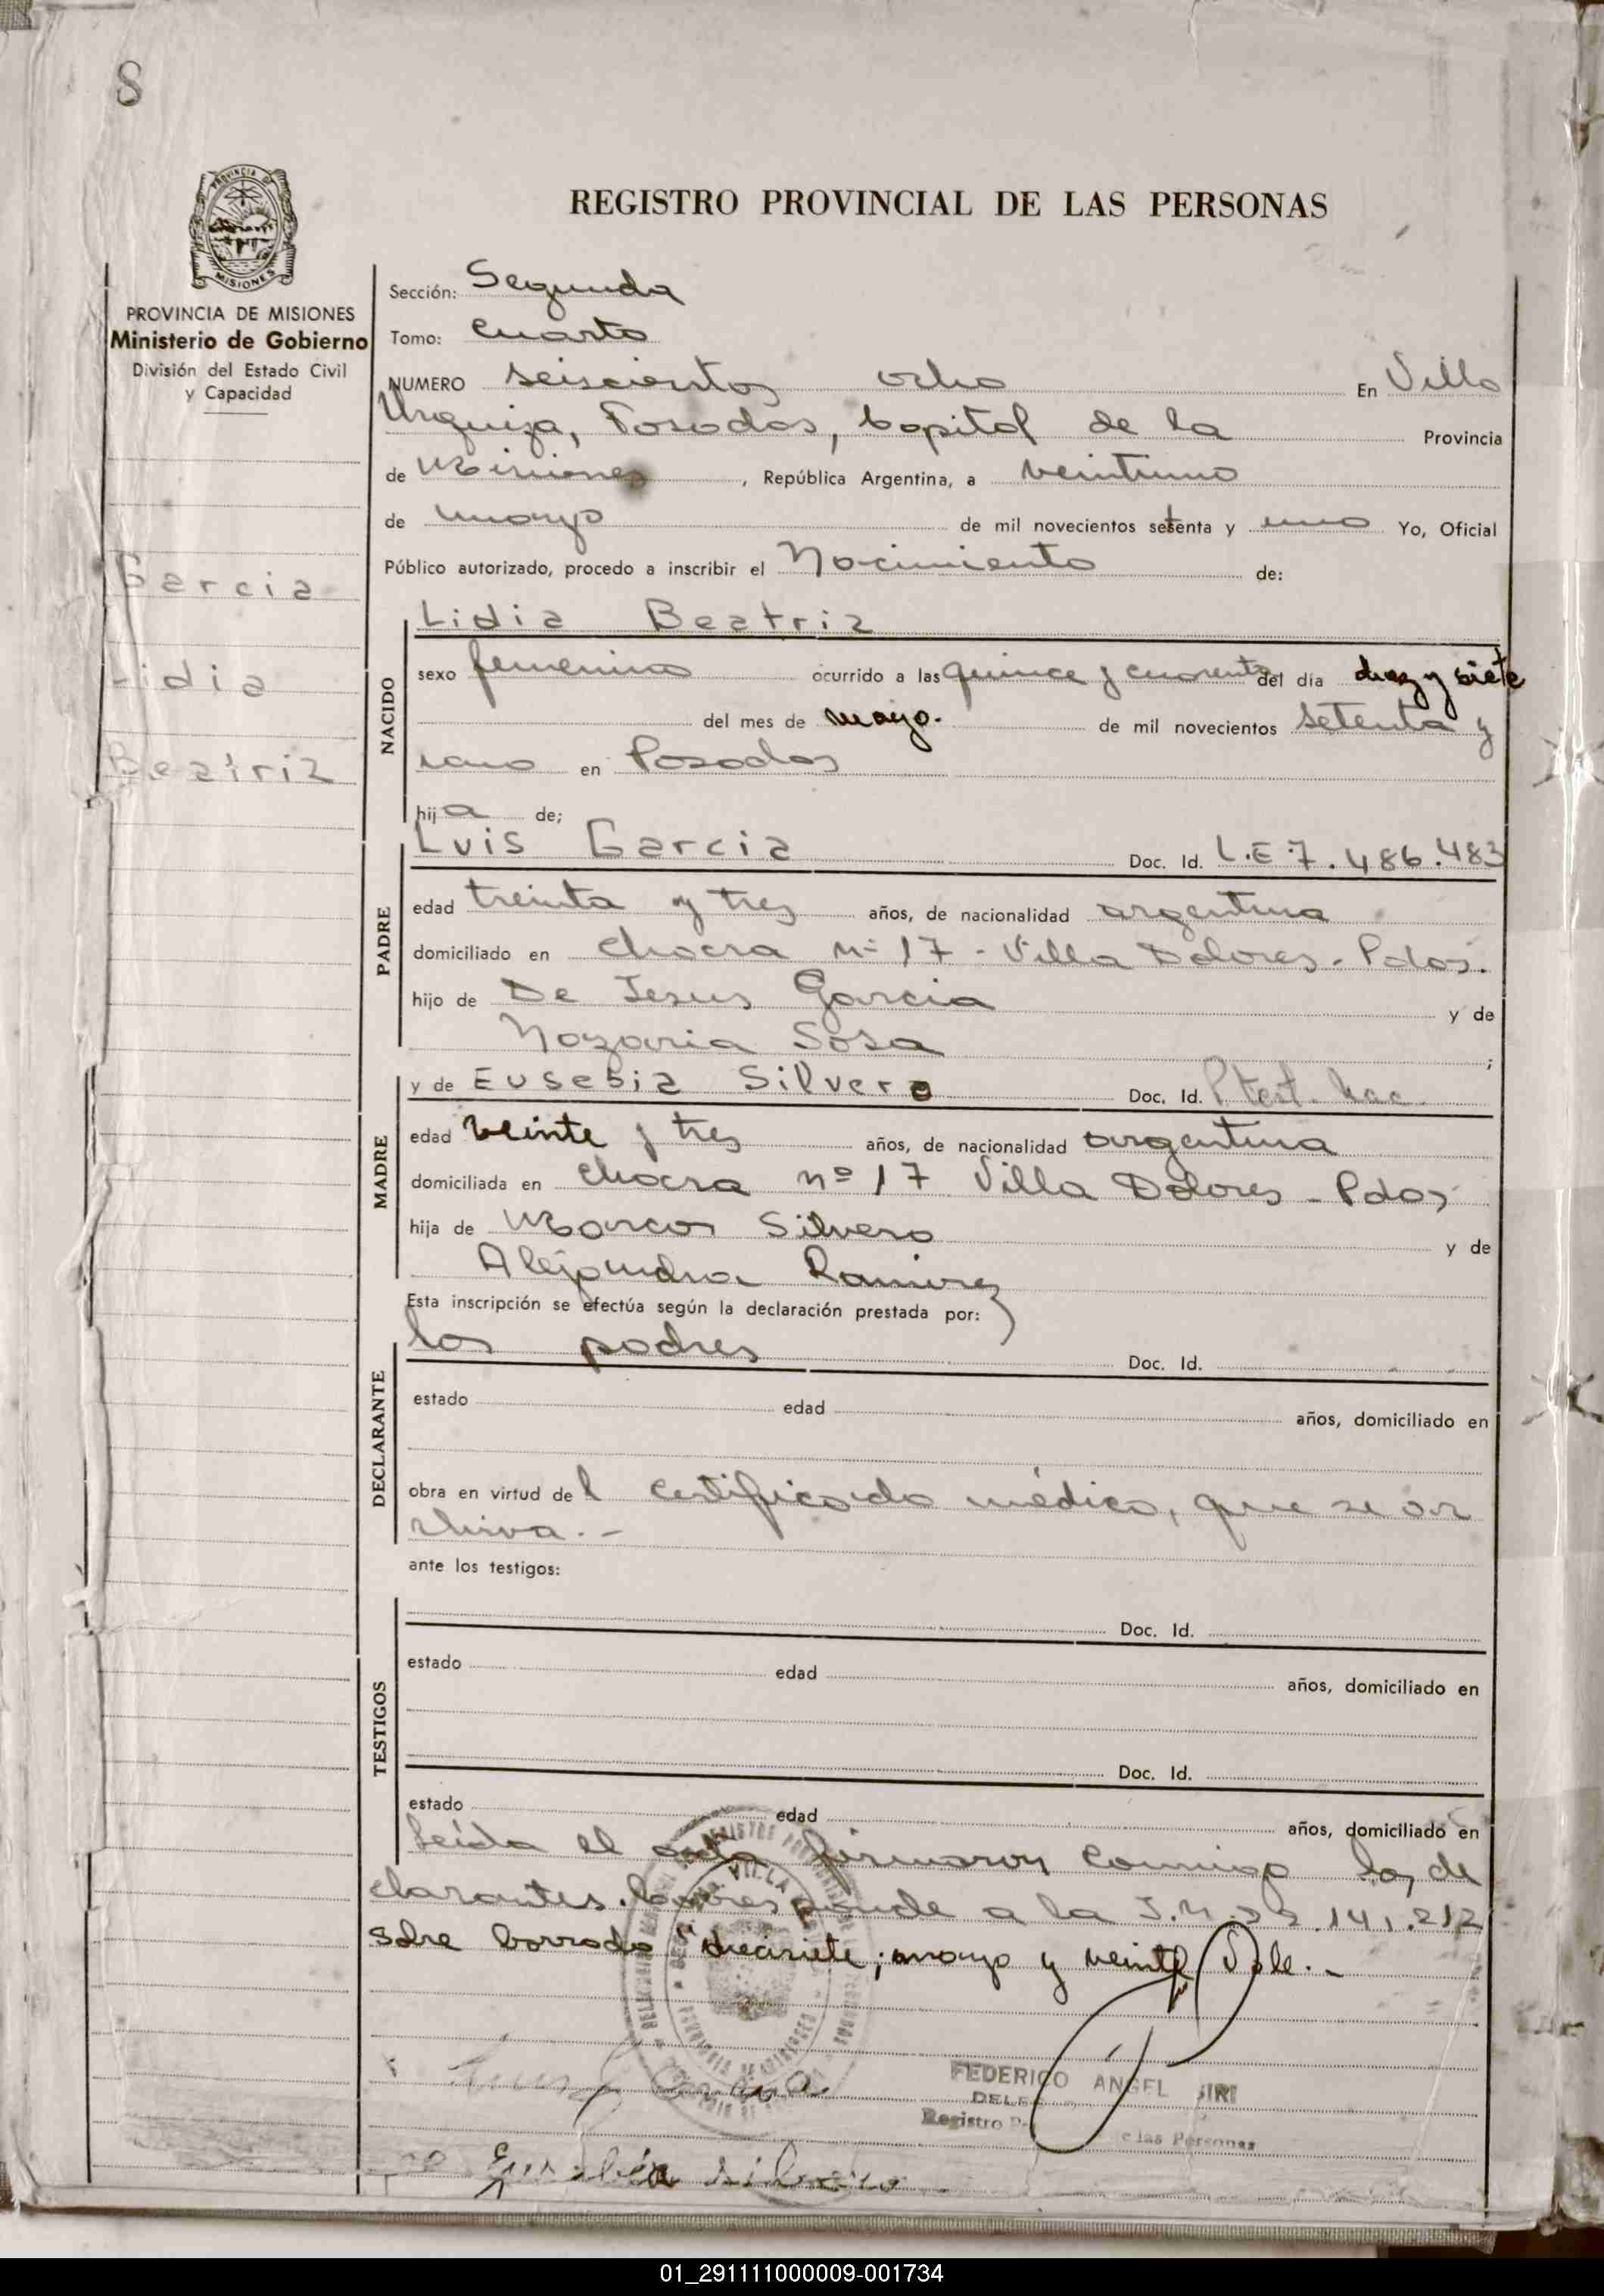 8
PROVINCIA DE MISIONES
MISIONES
REGISTRO PROVINCIAL DE LAS PERSONAS
PROVINCIA DE MISIONES
Ministerio de Gobierno
División del Estado Civil
y Capacidad
Garcia
Lidia
Beatriz
Sección: Segunda
Tomo: Cuarto
NUMERO seiscientos ocho En Villa
Urquiza, Posadas, Capital de la Provincia
de Misiones, República Argentina, a veintiuno
de mayo de mil novecientos setenta y uno Yo, Oficial
Público autorizado, procedo a inscribir el Nacimiento de:
NACIDO
Lidia Beatriz
sexo femenino ocurrido a las quince y cuarenta del día diez y siete
del mes de mayo. de mil novecientos setenta y
uno en Posadas
hija de;
PADRE
Luis Garcia Doc. Id. L.E.7.486.483
edad treinta y tres años, de nacionalidad argentina
domiciliado en chacra nº 17 - Villa Dolores - Pdas.
hijo de De Jesus Garcia y de
Nazaria Sosa ;
MADRE
y de Eusebia Silvero Doc. Id. P test. hac.
edad veinte y tres años, de nacionalidad argentina
domiciliada en chacra nº 17 Villa Dolores - Pdas
hija de Marcos Silvero y de
Alejandra Ramirez
Esta inscripción se efectúa según la declaración prestada por:
DECLARANTE
los padres Doc. Id.
estado edad años, domiciliado en
obra en virtud del certificado médico, que se ar
chiva.-
ante los testigos:
TESTIGOS
Doc. Id.
estado edad años, domiciliado en
Doc. Id.
estado edad años, domiciliado en
Leída el acta firmaron conmigo los de
clarantes. Corresponde a la 141.212
sobre borrado "diecisiete; mayo y veinte" Vale.-
Luis Garcia
FEDERICO ANGEL SIRI
Registro de las Personas
Eusebia Silvero
01_291111000009-001734